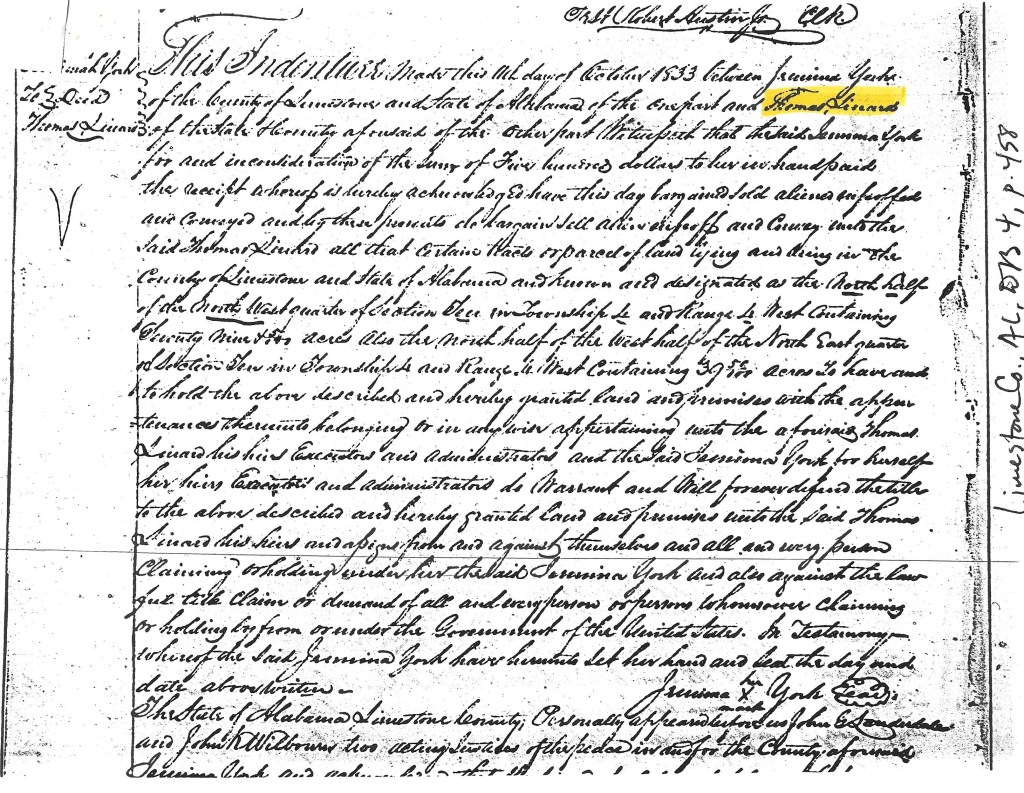 Test Robert Austin Jr. Clk
This Indenture Made this 11th day of October 1833 between Jemima York
of the County of Limestone and State of Alabama of the one part and Thomas Linard
of the State & County aforesaid of the other part Witnesseth that the said Jemima York
for and in consideration of the sum of Five hundred dollars to her in hand paid
the receipt whereof is hereby acknowledged have this day bargained sold aliened enfeoffed
and Conveyed and by these presents do bargain sell alien enfeoff and Convey unto the
said Thomas Linard all that certain tracts or parcel of land lying and being in the
County of Limestone and State of Alabama and known and designated as the North half
of the North West quarter of Section Ten in Township 4 and Range 4 West Containing
Seventy Nine acres also the north half of the West half of the North East quarter
of Section Ten in Township 4 and Range 4 West Containing 39 acres To have and
to hold the above described and hereby granted land and premises with the appur
tenances thereunto belonging or in any wise appertaining unto the aforesaid Thomas
Linard his heirs Executors and administrators and the said Jemima York for herself
her heirs Executors and administrators do Warrant and Will forever defend the title
to the above described and hereby granted land and premises unto the said Thomas
Linard his heirs and assigns from and against themselves and all and every person
Claiming or holding under her the said Jemima York and also against the law
ful title Claim or demand of all and every person or persons whomsoever Claiming
or holding by from or under the Government of the United States. In Testimony
whereof the said Jemima York have hereunto set her hand and seal the day and
date above written
her
Jemima X York Seal
mark
The State of Alabama Limestone County, Personally appeared before us John E Lauderdale
and John R Wilbourn two acting Justices of the peace in and for the County aforesaid
Jemima York and
mah York
To Deed
Thomas Linard
Limestone Co., AL. DB 4, p. 458